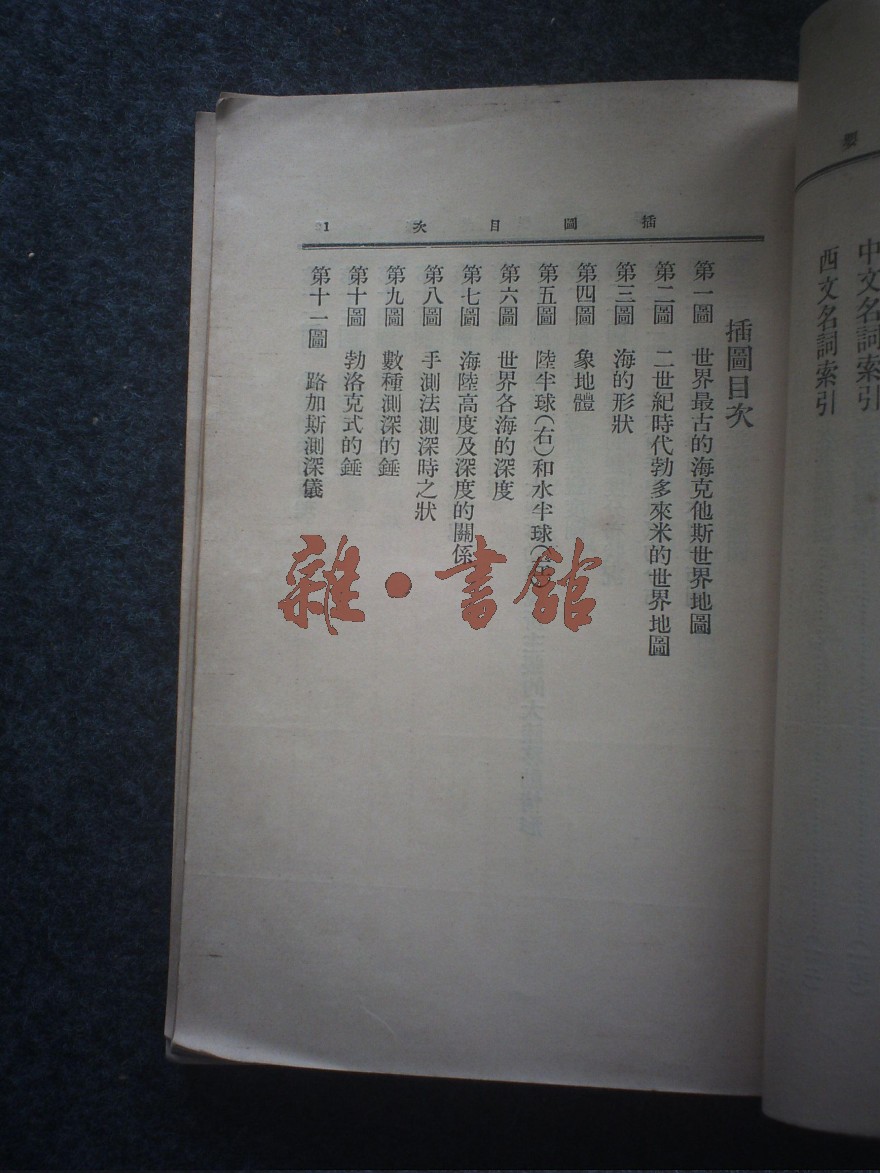 學
中文名詞索引
西文名詞索引
插圖目次 21
插圖目次
第一圖 世界最古的海克他斯世界地圖
第二圖 二世紀時代勃多來米的世界地圖
第三圖 海的形狀
第四圖 象地體
第五圖 陸半球(右)和水半球(左)
第六圖 世界各海的深度
第七圖 海陸高度及深度的關係
第八圖 手測法測深時之狀
第九圖 數種測深的錘
第十圖 勃洛克式的錘
第十一圖 路加斯測深儀
雜·書館